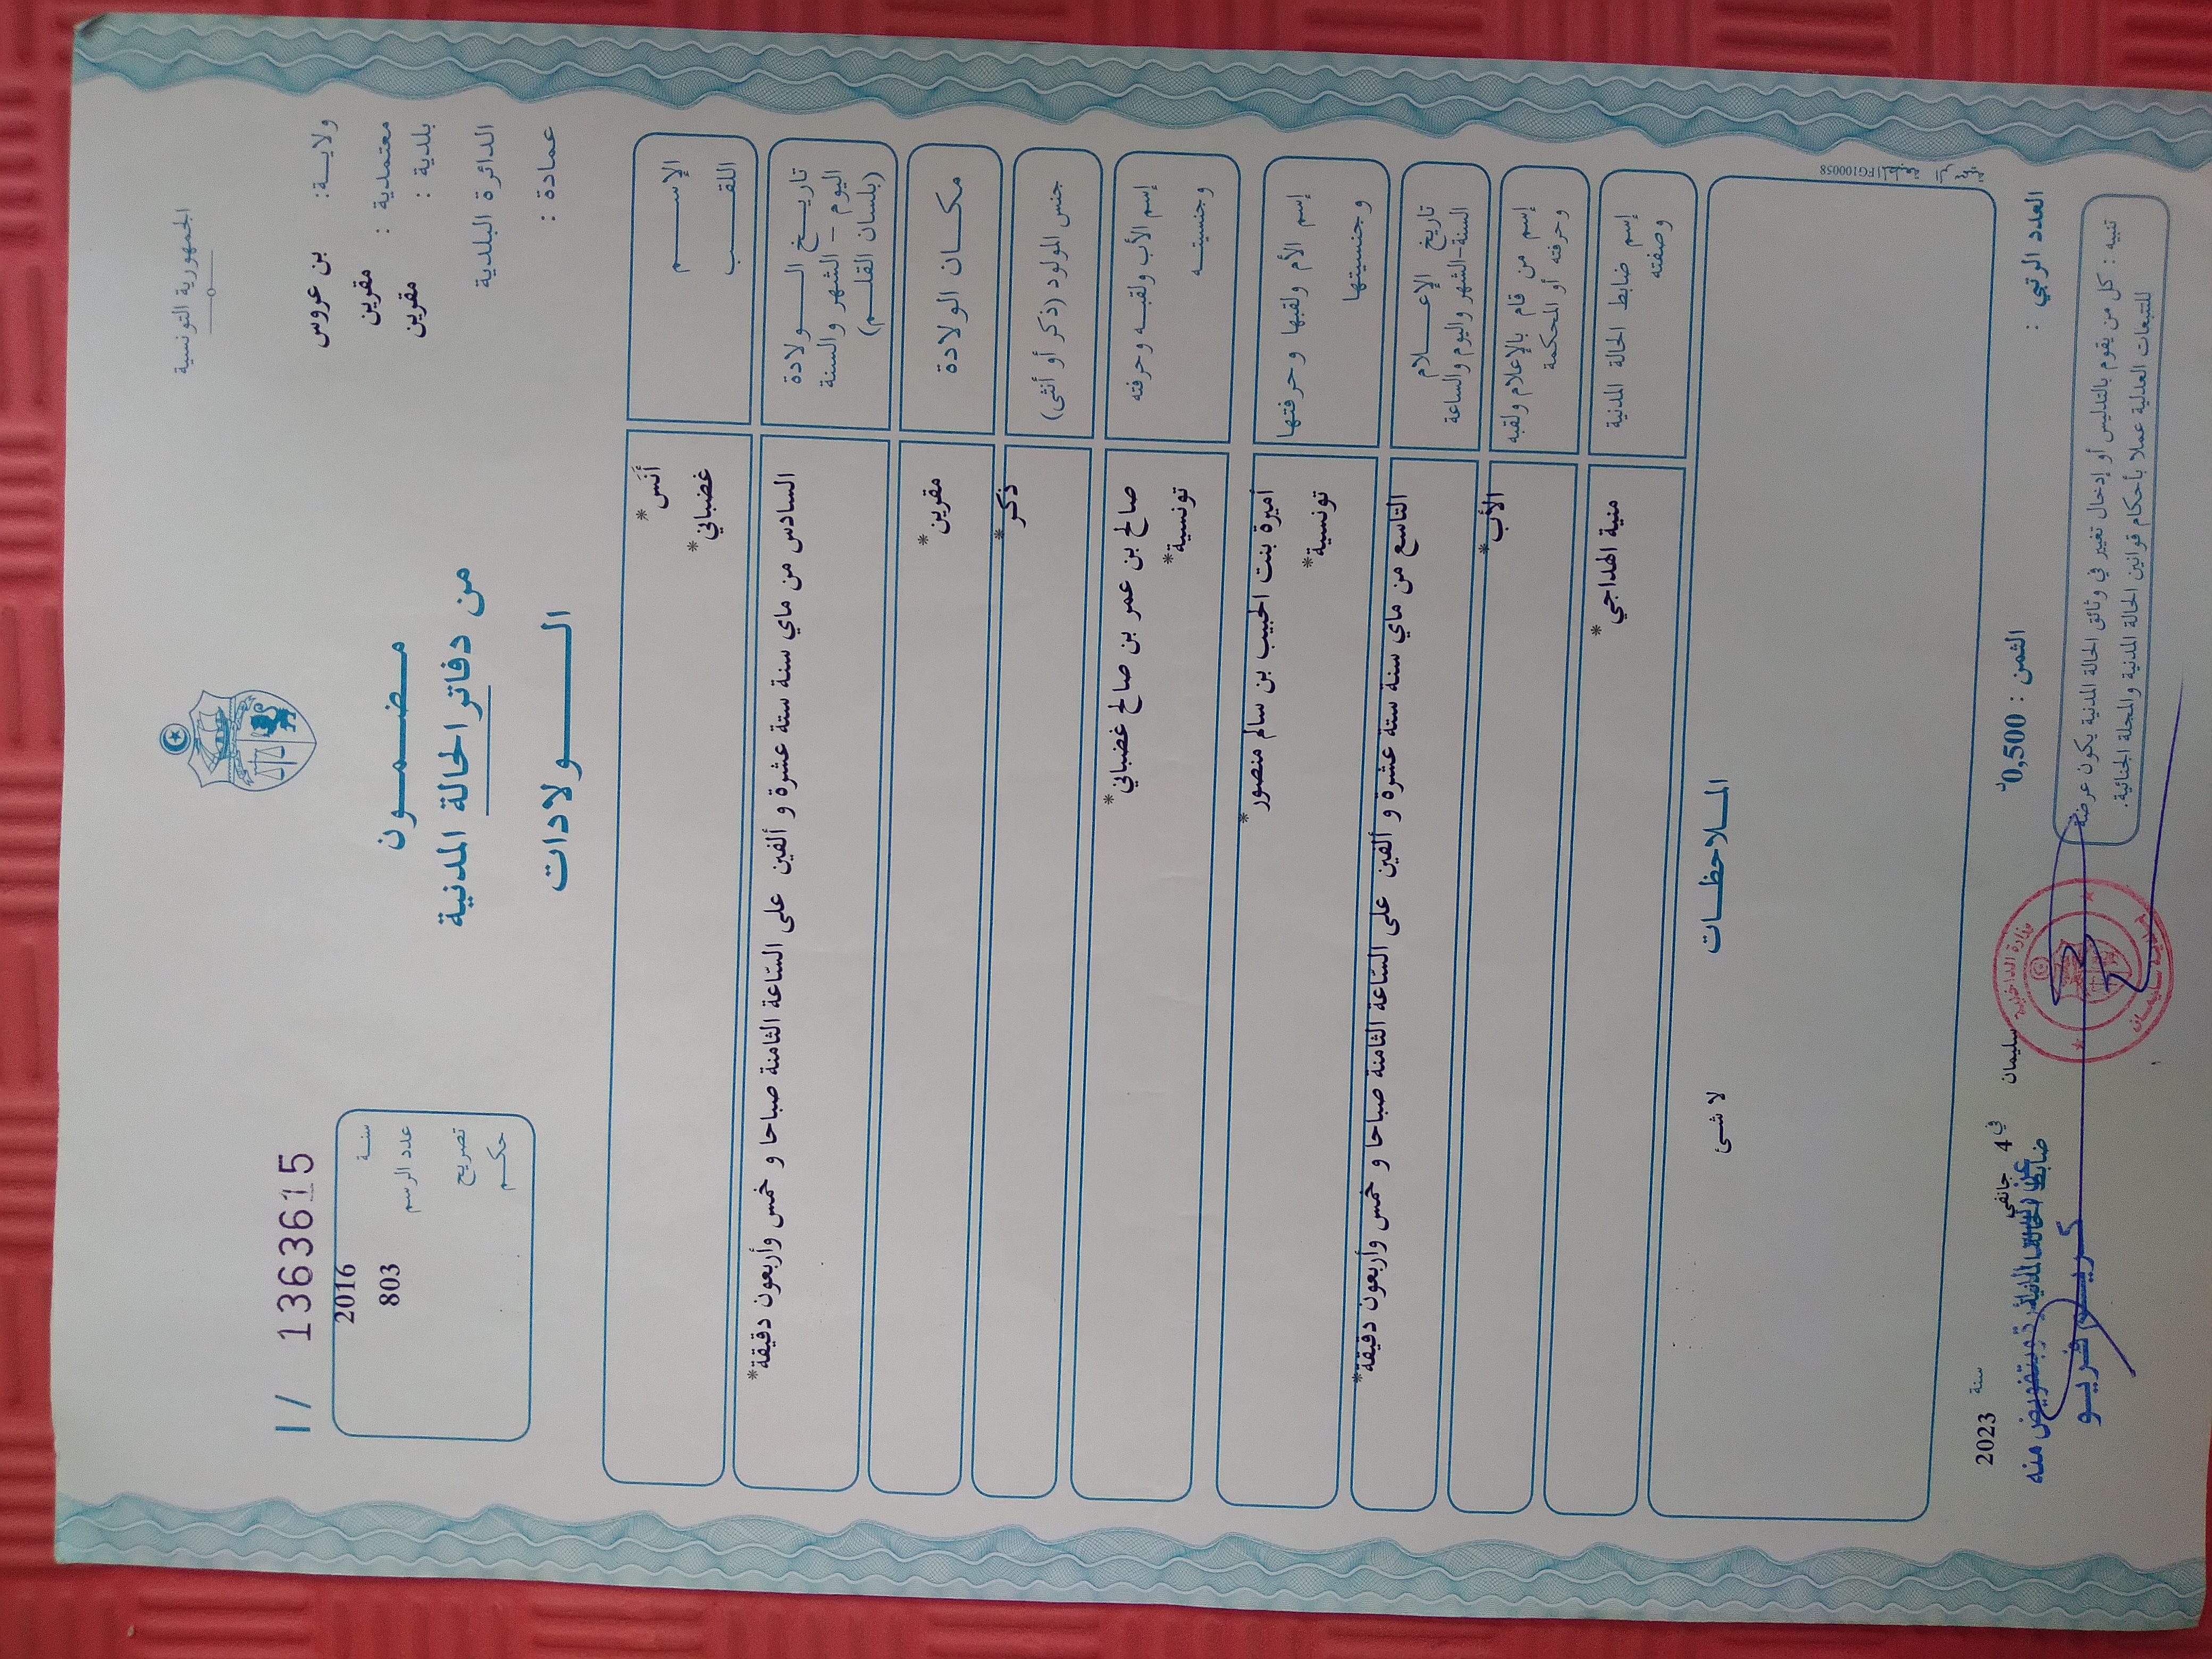 الجمهورية التونسية
ولايـــة: بن عروس
معتمدية : مقرين
بلدية : مقرين
الدائرة البلدية
عمادة :
I / 1363615
سنــة 2016
عدد الرسم 803
تصريح
حكــم
مضمــون
من دفاتر الحالة المدنية
الــولادات
الإســـم *أنَس
اللقـــب *غضباني
تاريـــخ الـــولادة
اليوم - الشهر والسنة
(بلسان القلـــم)
السادس من ماي سنة ستة عشرة و ألفين على السّاعة الثامنة صباحا و خمس وأربعون دقيقة*
مكـــان الولادة *مقرين
جنس المولود (ذكر أو أنثى) *ذكر
إسم الأب ولقبـــه وحرفته
صالح بن عمر بن صالح غضباني*
وجنسيتـــه *تونسية
إسم الأم ولقبها وحرفتها
أميرة بنت الحبيب بن سالم منصور*
وجنسيتها *تونسية
تاريخ الإعـــلام
السنة-الشهر واليوم والساعة
التاسع من ماي سنة ستة عشرة و ألفين على السّاعة الثامنة صباحا و خمس وأربعون دقيقة*
إسم من قام بالإعلام ولقبه
وحرفته أو المحكمة
*الأب
إسم ضابط الحالة المدنية
وصفته
منية الهداجي*
الملاحظــات
لا شئ
FG100058
العدد الرتبي :
الثمن : 0,500د
سليمان في 4 جانفي سنة 2023
تنبيه : كل من يقوم بالتدليس أو إدخال تغيير في وثائق الحالة المدنية يكون عرضة
للتتبعات العدلية عملا بأحكام قوانين الحالة المدنية والمجلة الجنائية.
وزارة الداخلية